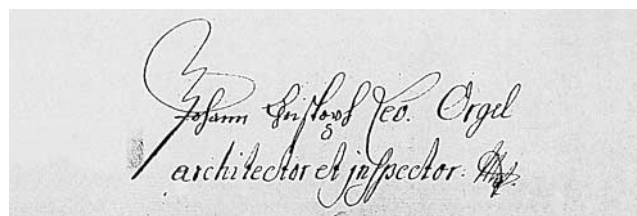 Johann Christoph Leo. Orgel
architector et inspector: